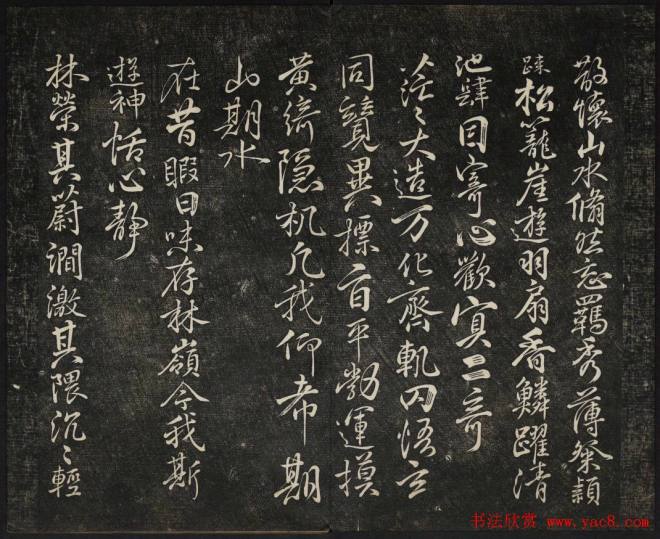 散懷山水脩然忘羈秀薄粲穎
踈松籠崖遊羽扇香鱗躍清
池肆目寄心歡冥二奇
茫〻大造万化齊軌罔悟玄
同競異摽平勃運摸
黃綺隱机凡我仰希期
山期水
在昔暇日味存林嶺今我斯
遊神恬心靜
林榮其蔚澗激其隈汎〻輕
书法欣赏 www.yac8.com